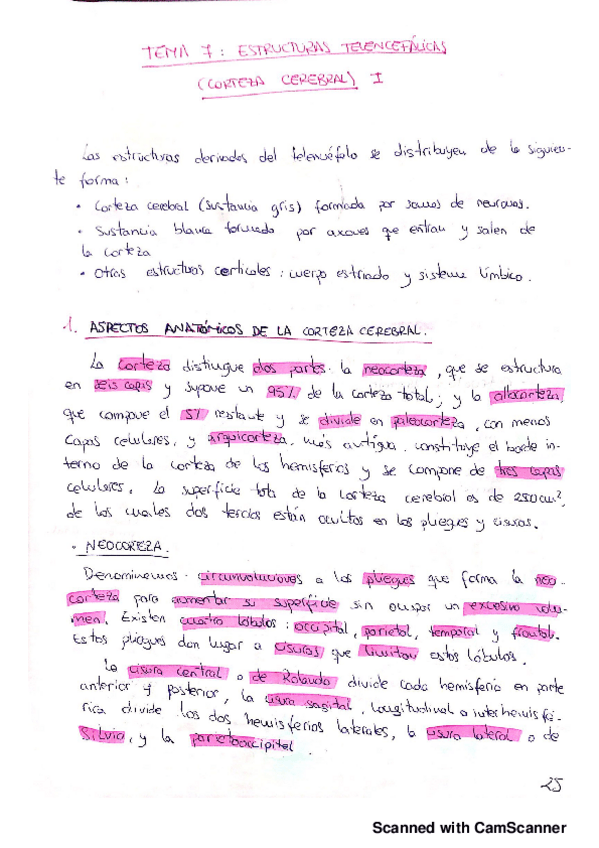 TEMA 7: ESTRUCTURAS TELENCEFÁLICAS
(CORTEZA CEREBRAL) I
Las estructuras derivadas del telencéfalo se distribuyen de la siguien-
te forma:
• Corteza cerebral (sustancia gris) formada por somas de neuronas.
• Sustancia blanca formada por axones que entran y salen de
la corteza
• Otras estructuras corticales: cuerpo estriado y sistema límbico.
1. ASPECTOS ANATÓMICOS DE LA CORTEZA CEREBRAL.
La corteza distingue dos partes: la neocorteza, que se estructura
en seis capas y supone un 95% de la corteza total; y la allocorteza,
que compone el 5% restante y se divide en paleocorteza, con menos
capas celulares, y arquicorteza, más antigua, constituye el borde in-
terno de la corteza de los hemisferios y se compone de tres capas
celulares. La superficie total de la corteza cerebral es de 2500cm²,
de los cuales dos tercios están ocultos en los pliegues y cisuras.
• NEOCORTEZA.
Denominemos circunvoluciones a los pliegues que forma la neo-
corteza para aumentar su superficie sin ocupar un excesivo volu-
men. Existen cuatro lóbulos: occipital, parietal, temporal y frontal.
Estos pliegues dan lugar a cisuras que limitan estos lóbulos.
La cisura central o de Rolando divide cada hemisferio en parte
anterior y posterior, la cisura sagital, longitudinal o interhemisfé-
rica divide los dos hemisferios laterales, la cisura lateral o de
Silvio, y la parietooccipital.
25
Scanned with CamScanner